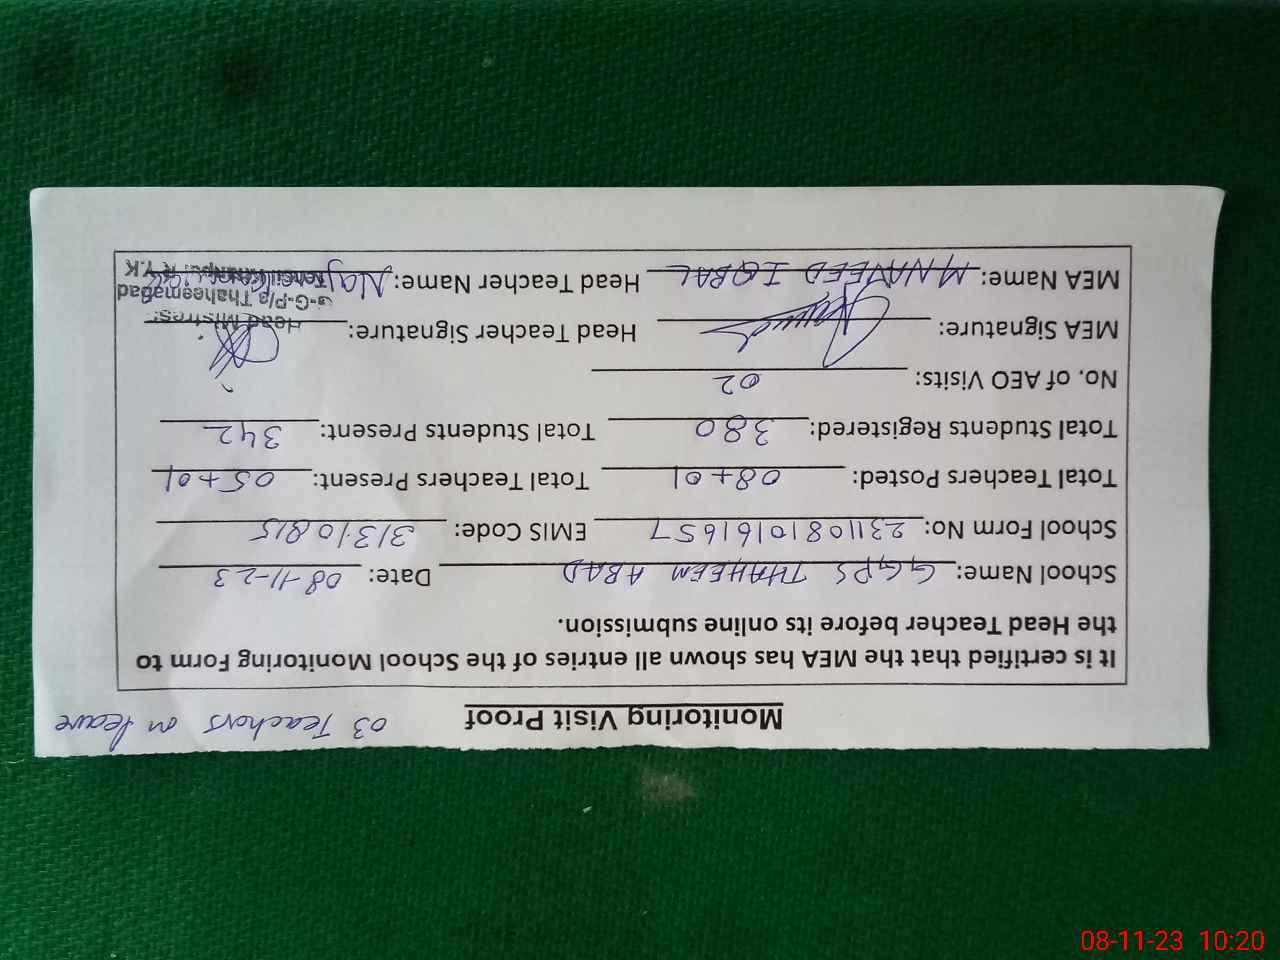 Monitoring Visit Proof
03 Teachers on leave
It is certified that the MEA has shown all entries of the School Monitoring Form to
the Head Teacher before its online submission.
School Name: GGPS THAHEEM ABAD Date: 08-11-23
School Form No: 23110810161657 EMIS Code: 31310815
Total Teachers Posted: 08+01 Total Teachers Present: 05+01
Total Students Registered: 380 Total Students Present: 342
No. of AEO Visits: 02
MEA Signature: Head Teacher Signature:
MEA Name: M NAVEED IQBAL Head Teacher Name:
Head Mistres:
G-G-P/s Thaheemabad
R.Y.K
08-11-23 10:20